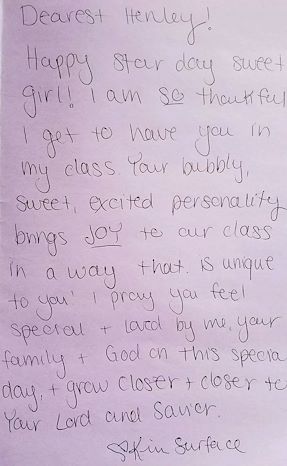 Dearest Henley!
Happy star day sweet
girl! I am so thankful
I get to have you in
my class. Your bubbly,
sweet, excited personality
brings JOY to our class
in a way that is unique
to you! I pray you feel
special + loved by me, your
family + God on this specia
day, + grow closer + closer to
Your Lord and Savior.
♡ Kin Surface